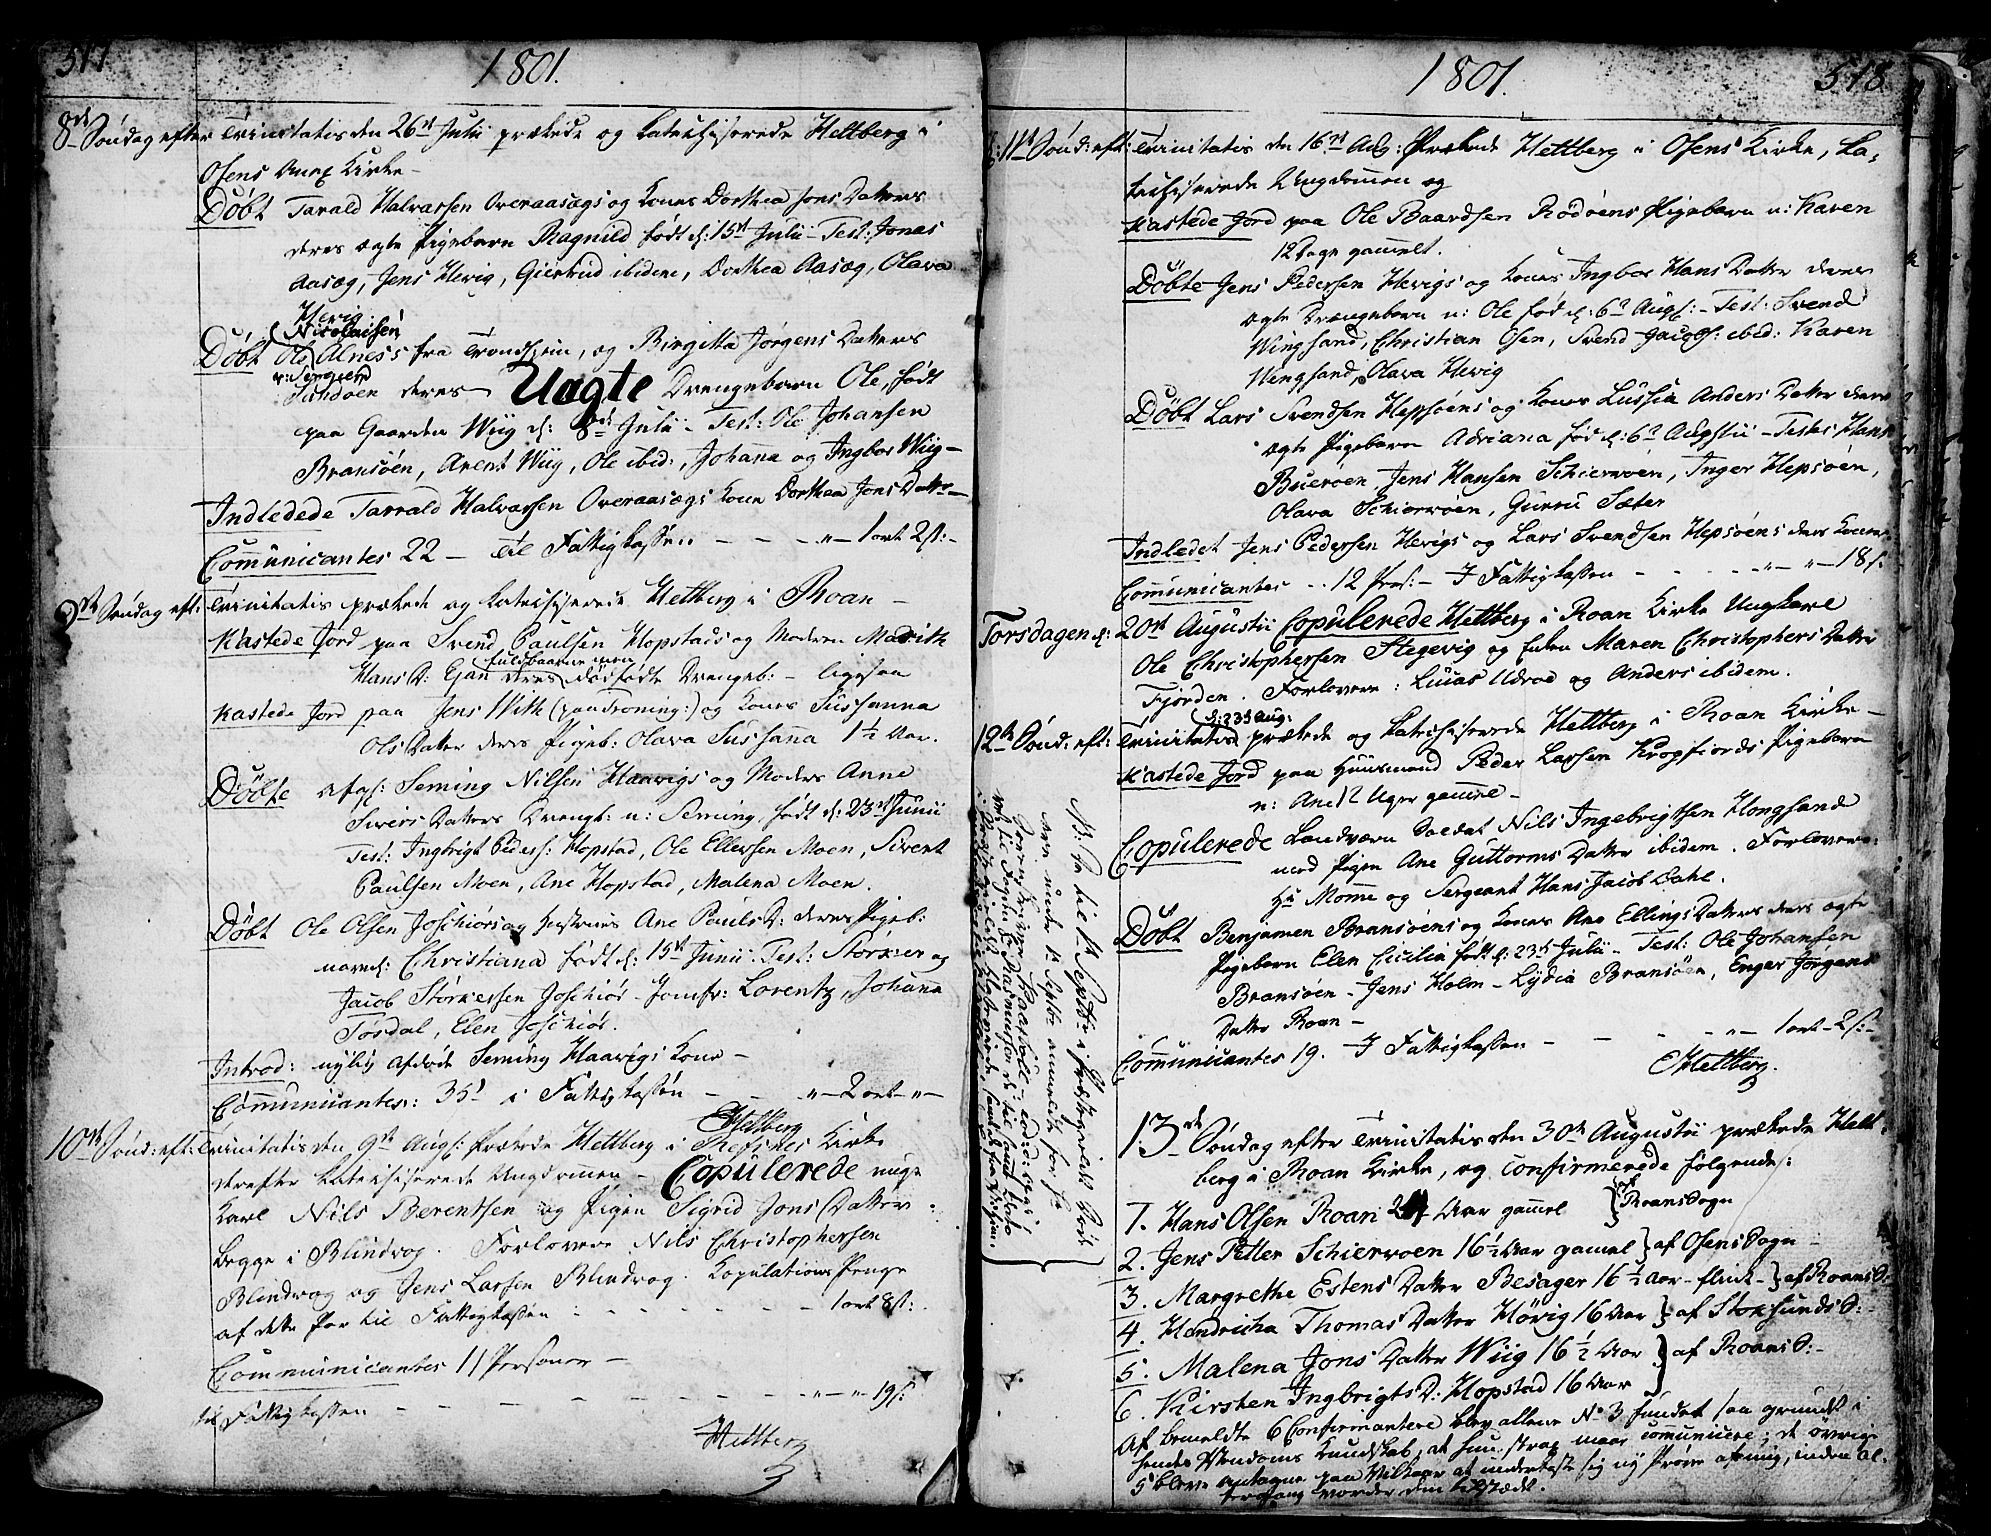 517
1801.
8de Søndag efter Trinitatis den 26de Julii prækede og Catechiserede Hettberg i
Osens Anex Kirke -
Døbt Tarald Halvarsen Overaasægs og Kones Dorthea Jons Datters
deres ægte Pigebarn Ragnild født d: 15de Julii - Test: Jonas
Aasæg, Jens Hevig, Giertrud ibidem, Dorthea Aasæg, Olava
Hevig.
Nicolaisen
Døbt Ole Alness fra Trondhiem, og Birgitta Jørgens Datters
Sandøen deres Uægte Drengebarn Ole, født
paa Gaarden Wiig d: 8de Julii - Test: Ole Johansen
Bransøen, Arent Wiig, Ole ibid:, Johana og Ingbor Wiig -
Indledede Tarrald Halvarsen Overaasægs Kone Dorthea Jons Datter -
Communicantes 22 - til Fattigkassen - - - " - 1 ort 2 s: -
9de Søndag eft: Trinitatis prækede og Catechiserede Hettberg i Roan -
Kastede Jord paa Svend Paulsen Hopstads og Moderen Marith
fuldbaarne men
Hans D: Ejan deres dødfødte Drengeb: - ligesaa
Kastede Jord paa Jens With (paa Troning:) og Kones Sussanna
Ols Datter deres Pigeb: Olava Sussana 1 1/2 Aar.
Døbte afg: Seming Nilsen Haarvigs og Moders Anne
Sivers Datters Drengb: n: Seming, født d: 23de Junii
Test: Ingbrigt Peders: Hopstad, Ole Ellersen Moen, Sivert
Paulsen Moen, Ane Hopstad, Malena Moen.
Døbt Ole Olsen Joschiørs og Hustrues Ane Pauls D: deres Pigeb:
navnl: Christiana født d: 15de Junii. Test: Størker og
Jacob Størkersen Joschiør - Jomfr: Lorentz, Johana
Tørsdal, Elen Joschiør.
Introd: nylig afdøde Seming Haarvigs Kone -
Communicantes: 35 i Fattigkassen - - " - 2 ort - " -
Hettberg
10de Sønd: eft: Trinitatis den 9de Aug: Prækede Hettberg i Refsnes Kirke
derefter Catechiserede Ungdomen - Copulerede unge
Karl Nils Berentsen og Pigen Sigrid Jons Datter
begge i Blindvog. Forlovere Nils Christophersen
Blindvog og Jens Larsen Blindvog. Kopulations Penge
af dette Par til Fattigkassen - - - - - 1 ort 8 s:
Communicantes 11 Personer -
til Fattigkassen - - - - - - - " - " - 19 s:
Hettberg
1801.
518
11te Sønd: eft: Trinitatis den 16de Aug: Prækede Hettberg i Osens Kirke, Ca-
techiserede Ungdommen og
Kastede Jord paa Ole Baardsen Rødøens Pigebarn n: Karen
12 Dage gammelt.
Døbte Jens Pedersen Hevigs og Kones Ingbor Hans Datter deres
ægte Drengebarn n: Ole fød d: 6te Aug: - Test: Svend
Wingsand, Christian Osen, Svend Jacobs: ibid: Karen
Wingsand, Olava Hevig
Døbt Lars Svendsen Hepsøens og Kones Lussia Anders Datter deres
ægte Pigebarn Adriana fød d: 6te Augustii - Testes Hans
Buerøen, Jens Hansen Schiervøen, Inger Hepsøen,
Olava Schiervøen, Gurru Sæter
Indledet Jens Pedersen Hevigs og Lars Svendsen Hepsøens deres Koner
Communicantes - - 12 Pers: - I Fattigkassen - - - - - " - " - 18 s:
Torsdagen d: 20de Augustii Copulerede Hettberg i Roan Kirke Ungkarl
Ole Christophersen Stegevig og Enken Maren Christophers Datter
Fjorden. Forlovere: Lucas Udrod og Anders ibidem.
d: 23de Aug:
12te Sønd: eft: Trinitatis prækede og Catechiserede Hettberg i Roan Kirke -
Kastede Jord paa Huusmand Peder Larsen Kropfjords Pigebarn
n: Ane 12 Uger gammel -
Copulerede Landværn Soldat Nils Ingebrigtsen Hongsand
med Pigen Ane Guttorms Datter ibidem. Forlovere:
Hr Momme og Sergeant Hans Jacob Dahl.
Døbt Benjamen Bransøens og Kones Ane Ellings Datters deres ægte
Pigebarn Elen Cicilia født d: 23de Julii - Test: Ole Johansen
Bransøen - Jens Holm - Lydia Bransøen, Enger Jørgens
Datter Roan -
Communicantes 19. I Fattigkassen - - - - " - 1 ort - 2 s: -
Hettberg.
13de Søndag efter Trinitatis den 30te Augustii prækede Hett-
berg i Roan Kirke, og confirmerede følgende:
1. Hans Olsen Roan Aar gammel } af Roans Sogn
2. Jens Petter Schiervøen 16 1/2 Aar gamel } af Osens Sogn -
3. Margrethe Estens Datter Besager 16 1/2 Aar - flink - } af Roans S:
4. Hendricha Thomas Datter Hørig 16 Aar } af Stoksunds S: -
5. Malena Jons Datter Wiig 16 1/2 Aar } af Roans S: -
6. Kiersten Ingbrigts D: Hopstad 16 Aar
Af bemeldte 6 Confirmantere blev allene No 3 funden saa grundet i
sendes Kundskab, at hun strax maae comunicere; de øvrige
5 bleve antagne paa Vilkaar at underkaste sig ny Prøve afmig, inden Al-
tergang vorder dem tilstædt.